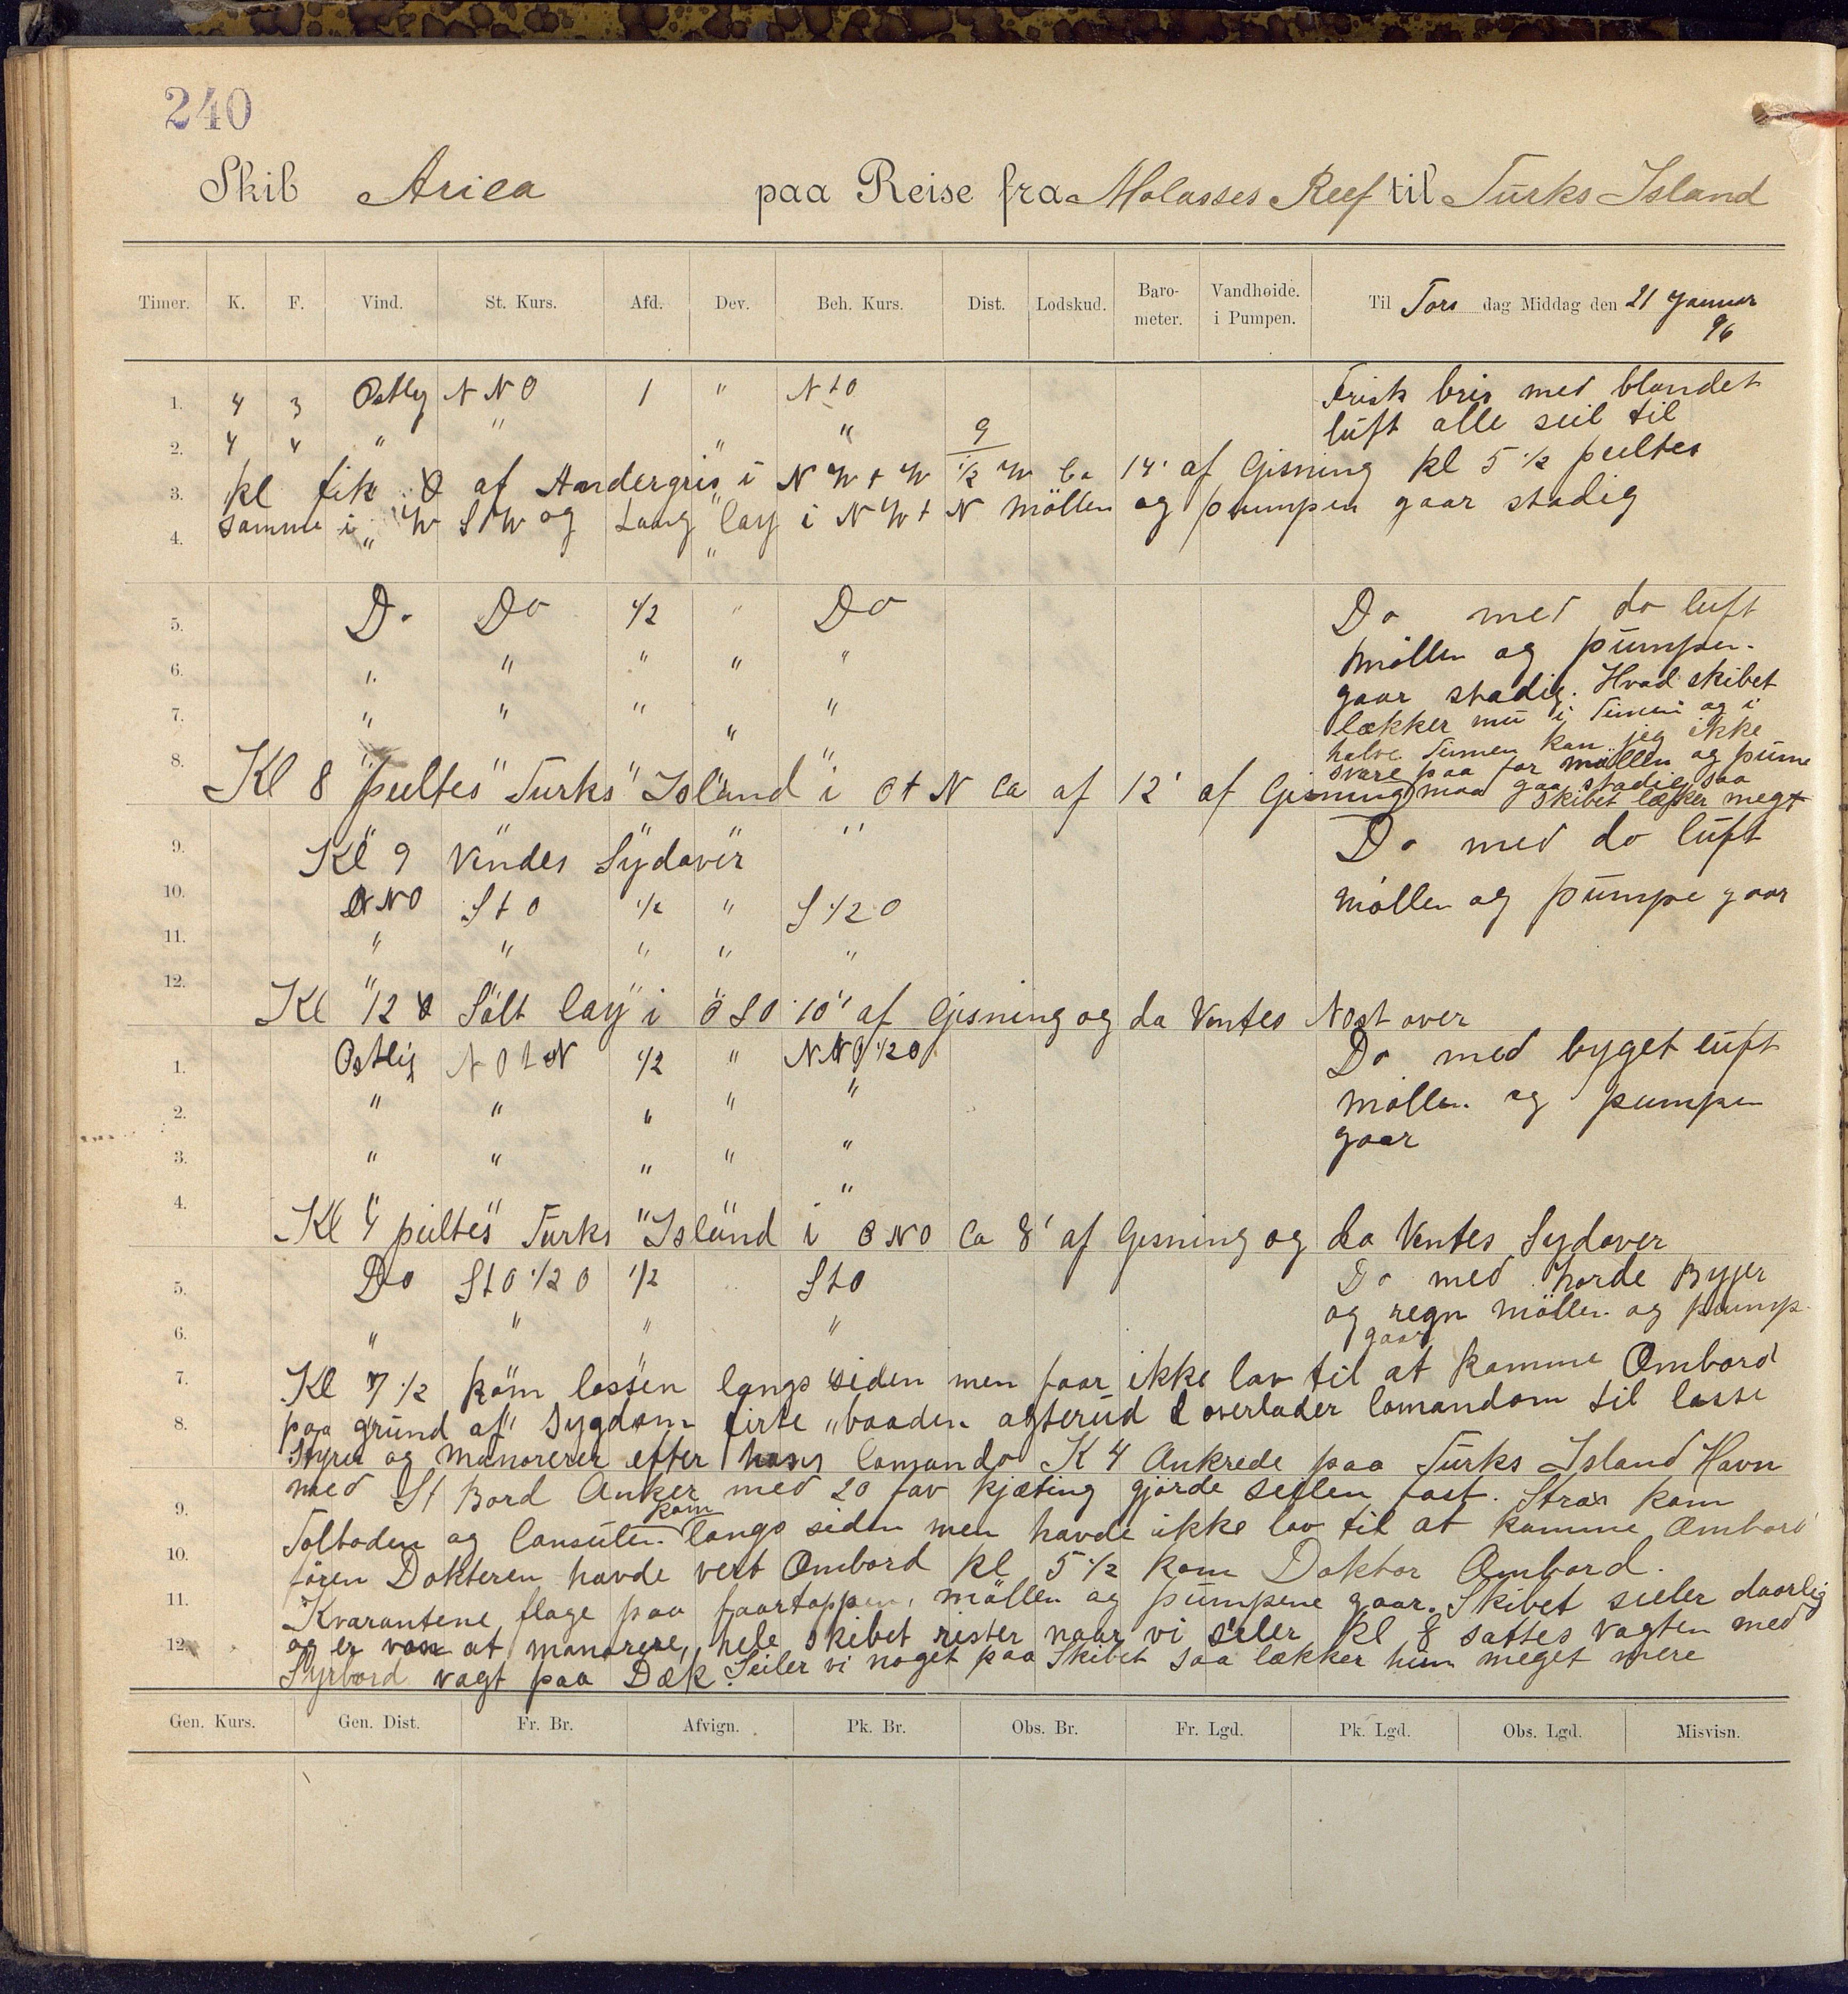 240
Skib Arica paa Reise fra Molasses Reef til Turks Island
Timer. K. F. Vind. St. Kurs. Afd. Dev. Beh. Kurs. Dist. Lodskud. Baro-meter. Vandhøide. i Pumpen. Til Tors dag Middag den 21 Januar 96
1. 4 3 Ostlig N N O 1 " N t O Frisk bris med blandet
2. 4 4 " " " " 9 lüft alle seil til
3. kl fik af Andergris i N W t W 1/2 W Ca 14' af Gisning kl 5 1/2 peiltes
4. samme i W S t W og Lang Cay i N W t N möllen og pumpen gaar stadig
5. Do Do 1/2 " Do Do med do luft
6. " " " " " möllen og pümpen
gaar stadig. Hvad skibet
7. " " " " " lækker nü i Timen og i
halve Timen kan jeg ikke
8. svare paa for møllen og püme
Kl 8 peiltes Turks Island i O t N Ca af 12' af Gisning maa gaa stadig saa
skibet lækker megt
9. Kl 9 Vendes Sydover Do med do lüft
10. N N O S t O 1/2 " S 1/2 O möllen og pümpe gaar
11. " " " " "
12. Kl 12 Salt Cay i O S O 10' af Gisning og da Ventes Nost over
1. Ostlig N O t N 1/2 " N N O 1/2 O Do med byget lüft
2. " " " " " möllen og pumpen
3. " " " " " gaar
4. "
Kl 4 peiltes Turks Island i O N O Ca 8' af Gisning og da Ventes Sydover
5. Do S t O 1/2 O 1/2 S t O Do med harde Byger
6. " " " " og regn möllen og pump
gaar
7. Kl 7 1/2 kom lossen langs siden men faar ikke lov til at komme Ombord
8. paa grund af Sygdom firte baaden agterud & overlader Comandom til losse
Styrer og manorerer efter hans Comando K 4 Ankrede paa Turks Island Havn
med St Bord Anker med 20 fav kjæting gjorde seilen fast. Strax kom
9. Tolboden og Consulen kom langs siden men havde ikke lov til at komme Ombord
10. fören Dokteren havde vert Ombord kl 5 1/2 kom Doktor Ombord.
11. Kvarantene flage paa faartoppen, möllen og pümpene gaar. Skibet seiler daarlig
12. og er van at manorere, hele skibet rister naar vi seiler kl 8 sattes vagten med
Styrbord vagt paa Dæk. Seiler vi noget paa Skibet saa lækker hun meget mere
Gen. Kurs. Gen. Dist. Fr. Br. Afvign. Pk. Br. Obs. Br. Fr. Lgd. Pk. Lgd. Obs. Lgd. Misvisn.